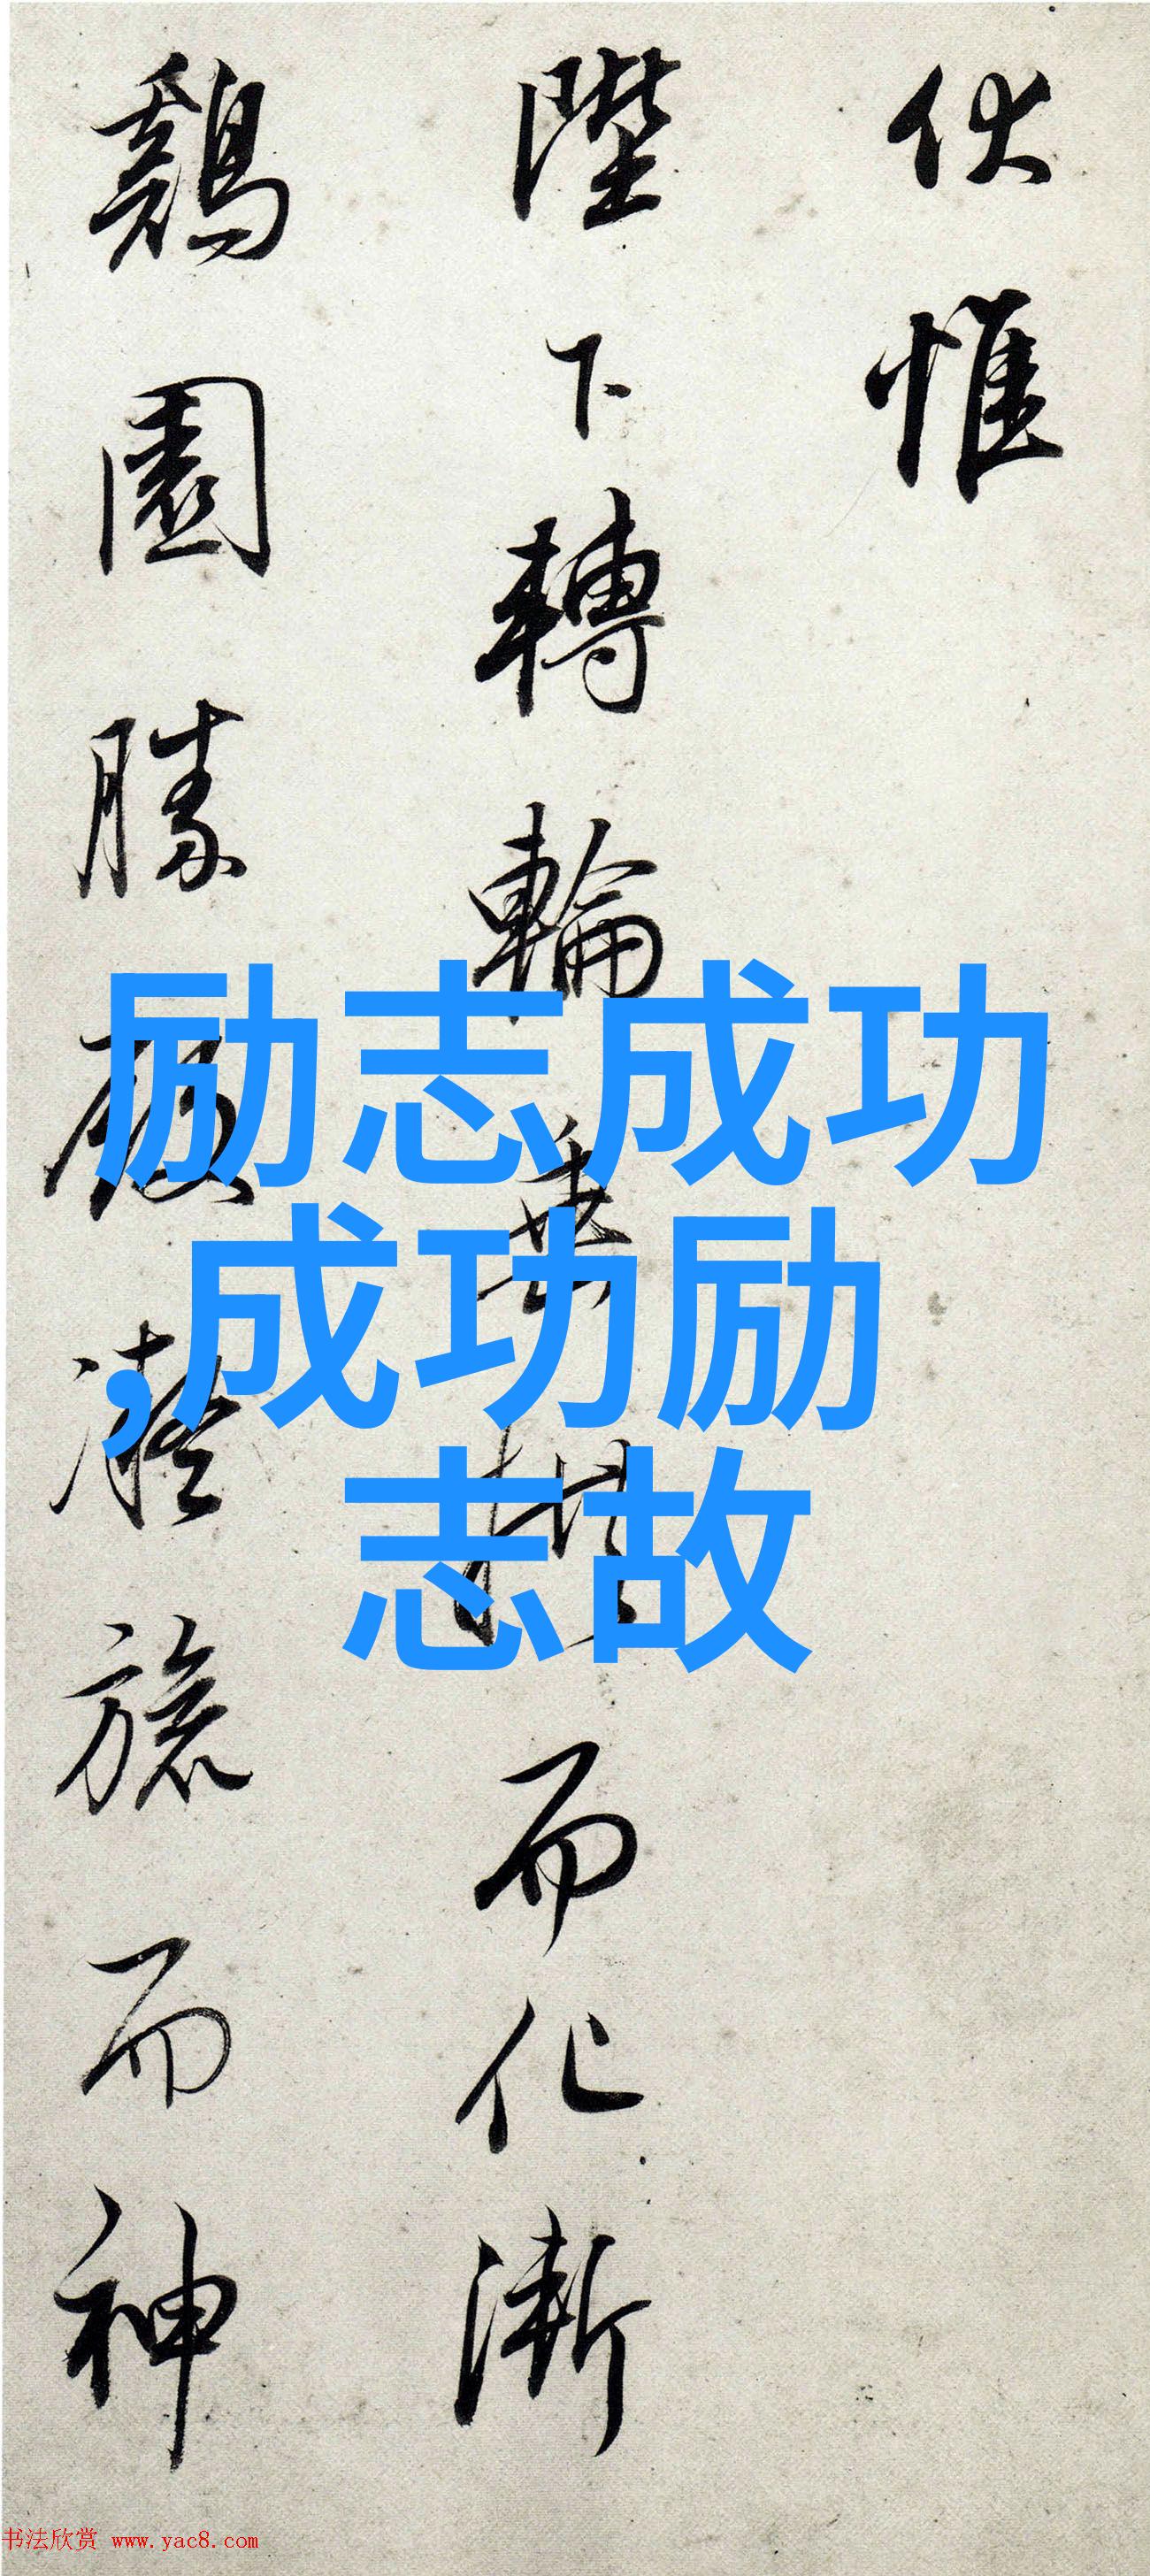 伏惟
陛下轉輪垂拱而化漸
鷄園勝殿凝旒而神
励志成功
,成功励
志故
书法欣赏 www.yac8.com